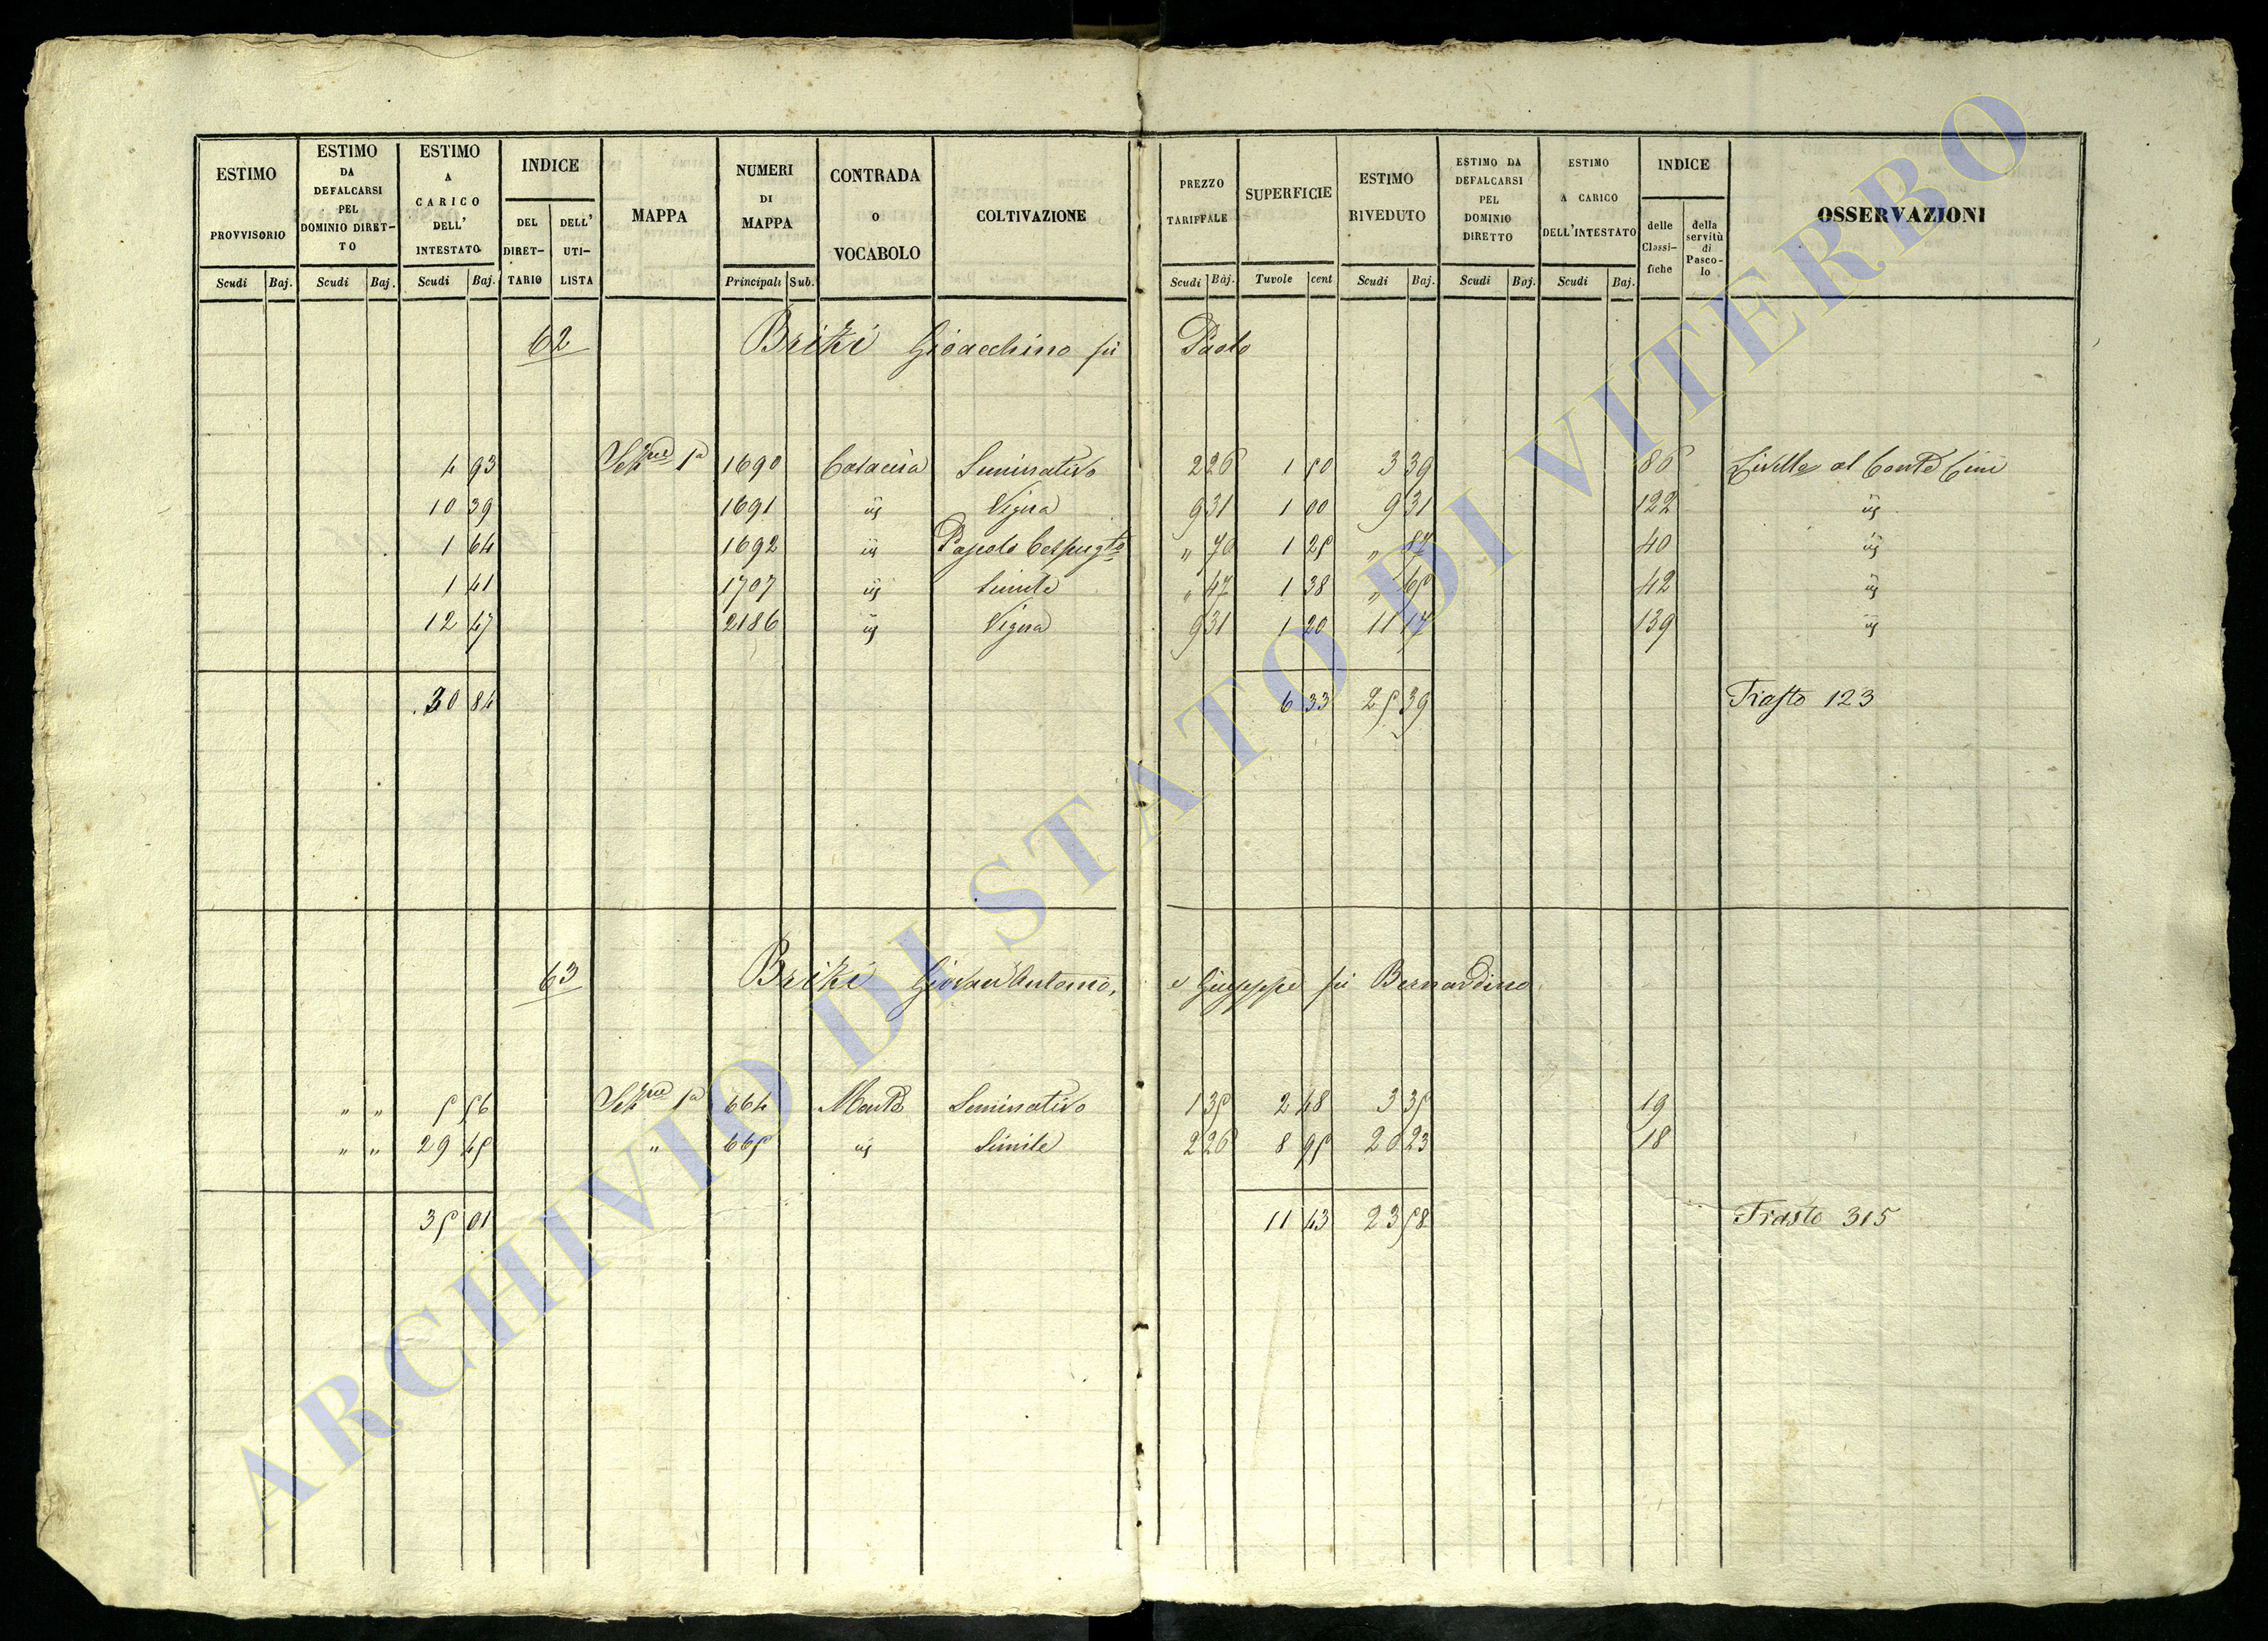 ESTIMO PROVVISORIO
Scudi Baj.
ESTIMO DA DEFALCARSI PEL DOMINIO DIRET-TO
Scudi Baj.
ESTIMO A CARICO DELL' INTESTATO
Scudi Baj.
INDICE
DEL DIRET-TARIO
DELL' UTI-LISTA
MAPPA
NUMERI DI MAPPA
Principali Sub.
CONTRADA O VOCABOLO
COLTIVAZIONE
PREZZO TARIFFALE
Scudi Baj.
SUPERFICIE
Tavole cent
ESTIMO RIVEDUTO
Scudi Baj.
ESTIMO DA DEFALCARSI PEL DOMINIO DIRETTO
Scudi Baj.
ESTIMO A CARICO DELL'INTESTATO
Scudi Baj.
INDICE
delle Classi-fiche
della servitù di Pasco-lo
OSSERVAZIONI
62 Brizi Gioacchino fù Paolo
4 93 Sezne 1a 1690 Seminativo 2 26 1 50 3 39 86
10 39 1691 Vigna 9 31 1 00 9 31 122
1 64 1692 Pascolo Cespugto " 70 1 25 " 87 40
1 41 1707 Simile " 47 1 38 " 65 42
12 47 2186 Vigna 9 31 1 20 11 17 139
30 84 6 33 25 39 Trasto 123
63 Brizi Giovan Antonio, e Giuseppe fù Bernardino
" " 5 56 Sezne 1a 664 Monte Seminativo 1 35 2 48 3 35 19
" " 29 45 " 665 Simile 2 26 8 95 20 23 18
35 01 11 43 23 58 Trasto 315
ARCHIVIO DI STATO DI VITERBO